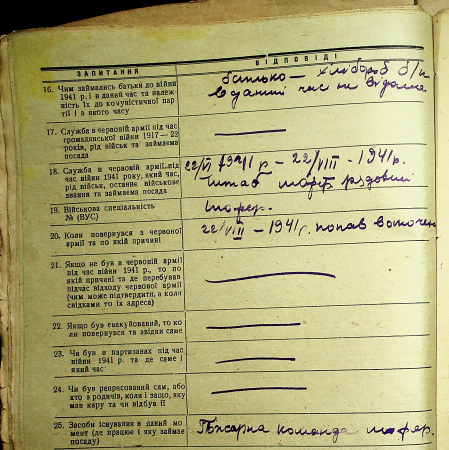 ЗАПИТАННЯ
ВІДПОВІДІ
16. Чим займались батьки до війни
1941 р. і в даний час та належ-
ність їх до комуністичної пар-
тії і з якого часу
батько — хлібороб б/п
в даний час не відомо
17. Служба в червоній армії під час
громадянської війни 1917—22
років, рід військ та займаєма
посада
18. Служба в червоній армії під
час війни 1941 року, який час,
рід військ, останнє військове
звання та займаєма посада
22/VI 1941 р — 22/VIII - 1941 р.
штаб рядовий
19. Військова спеціальність
№ (ВУС)
шофер.
20. Коли повернувся з червоної
армії та по якій причині
22/VIII — 1941 г. попав в оточен
21. Якщо не був в червоній армії
під час війни 1941 р., то по
якій причині та де перебував
підчас відходу червоної армії
(чим може підтвердити, а коли
свідками то їх адреса)
22. Якщо був евакуйований, то ко-
ли повернувся та звідки саме
23. Чи був в партизанах під час
війни 1941 р. та де саме і
який час
24. Чи був репресований сам, або
хто з родичів, коли і защо, яку
мав кару та чи відбув її
25. Засоби існування в даний мо-
мент (де працює і яку займає
посаду)
Пожарна команда шофер.